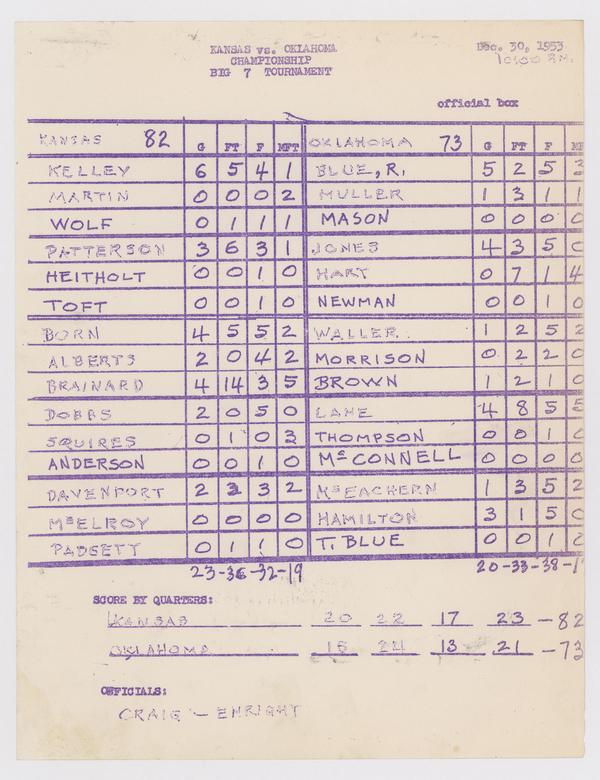 KANSAS vs. OKLAHOMA Dec. 30, 1953
CHAMPIONSHIP 10:00 P.M.
BIG 7 TOURNAMENT
official box
KANSAS 82 G FT F MFT OKLAHOMA 73 G FT F
KELLEY 6 5 4 1 BLUE, R. 5 2 5 3
MARTIN 0 0 0 2 MULLER 1 3 1 1
WOLF 0 1 1 1 MASON 0 0 0 0
PATTERSON 3 6 3 1 JONES 4 3 5 0
HEITHOLT 0 0 1 0 HART 0 7 1 4
TOFT 0 0 1 0 NEWMAN 0 0 1 0
BORN 4 5 5 2 WALLER 1 2 5 2
ALBERTS 2 0 4 2 MORRISON 0 2 2 0
BRAINARD 4 14 3 5 BROWN 1 2 1 0
DOBBS 2 0 5 0 LANE 4 8 5 5
SQUIRES 0 1 0 THOMPSON 0 0 1
ANDERSON 0 0 1 0 McCONNELL 0 0 0 0
DAVENPORT 2 3 3 2 McEACHERN 1 3 5 2
McELROY 0 0 0 0 HAMILTON 3 1 5 0
PADGETT 0 1 1 0 T. BLUE 0 0 1
23-36-32-19 20-33-38-
SCORE BY QUARTERS:
KANSAS 20 22 17 23 - 82
OKLAHOMA 15 24 13 21 - 73
OFFICIALS:
CRAIG - ENRIGHT